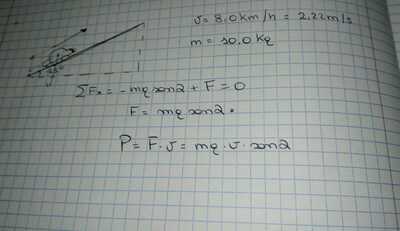 v = 8.0 km/h = 2.22 m/s
m = 50.0 kg
ΣFx = -mg sin2 + F = 0
F = mg sin2°
P = F · v = mg · v · sin2